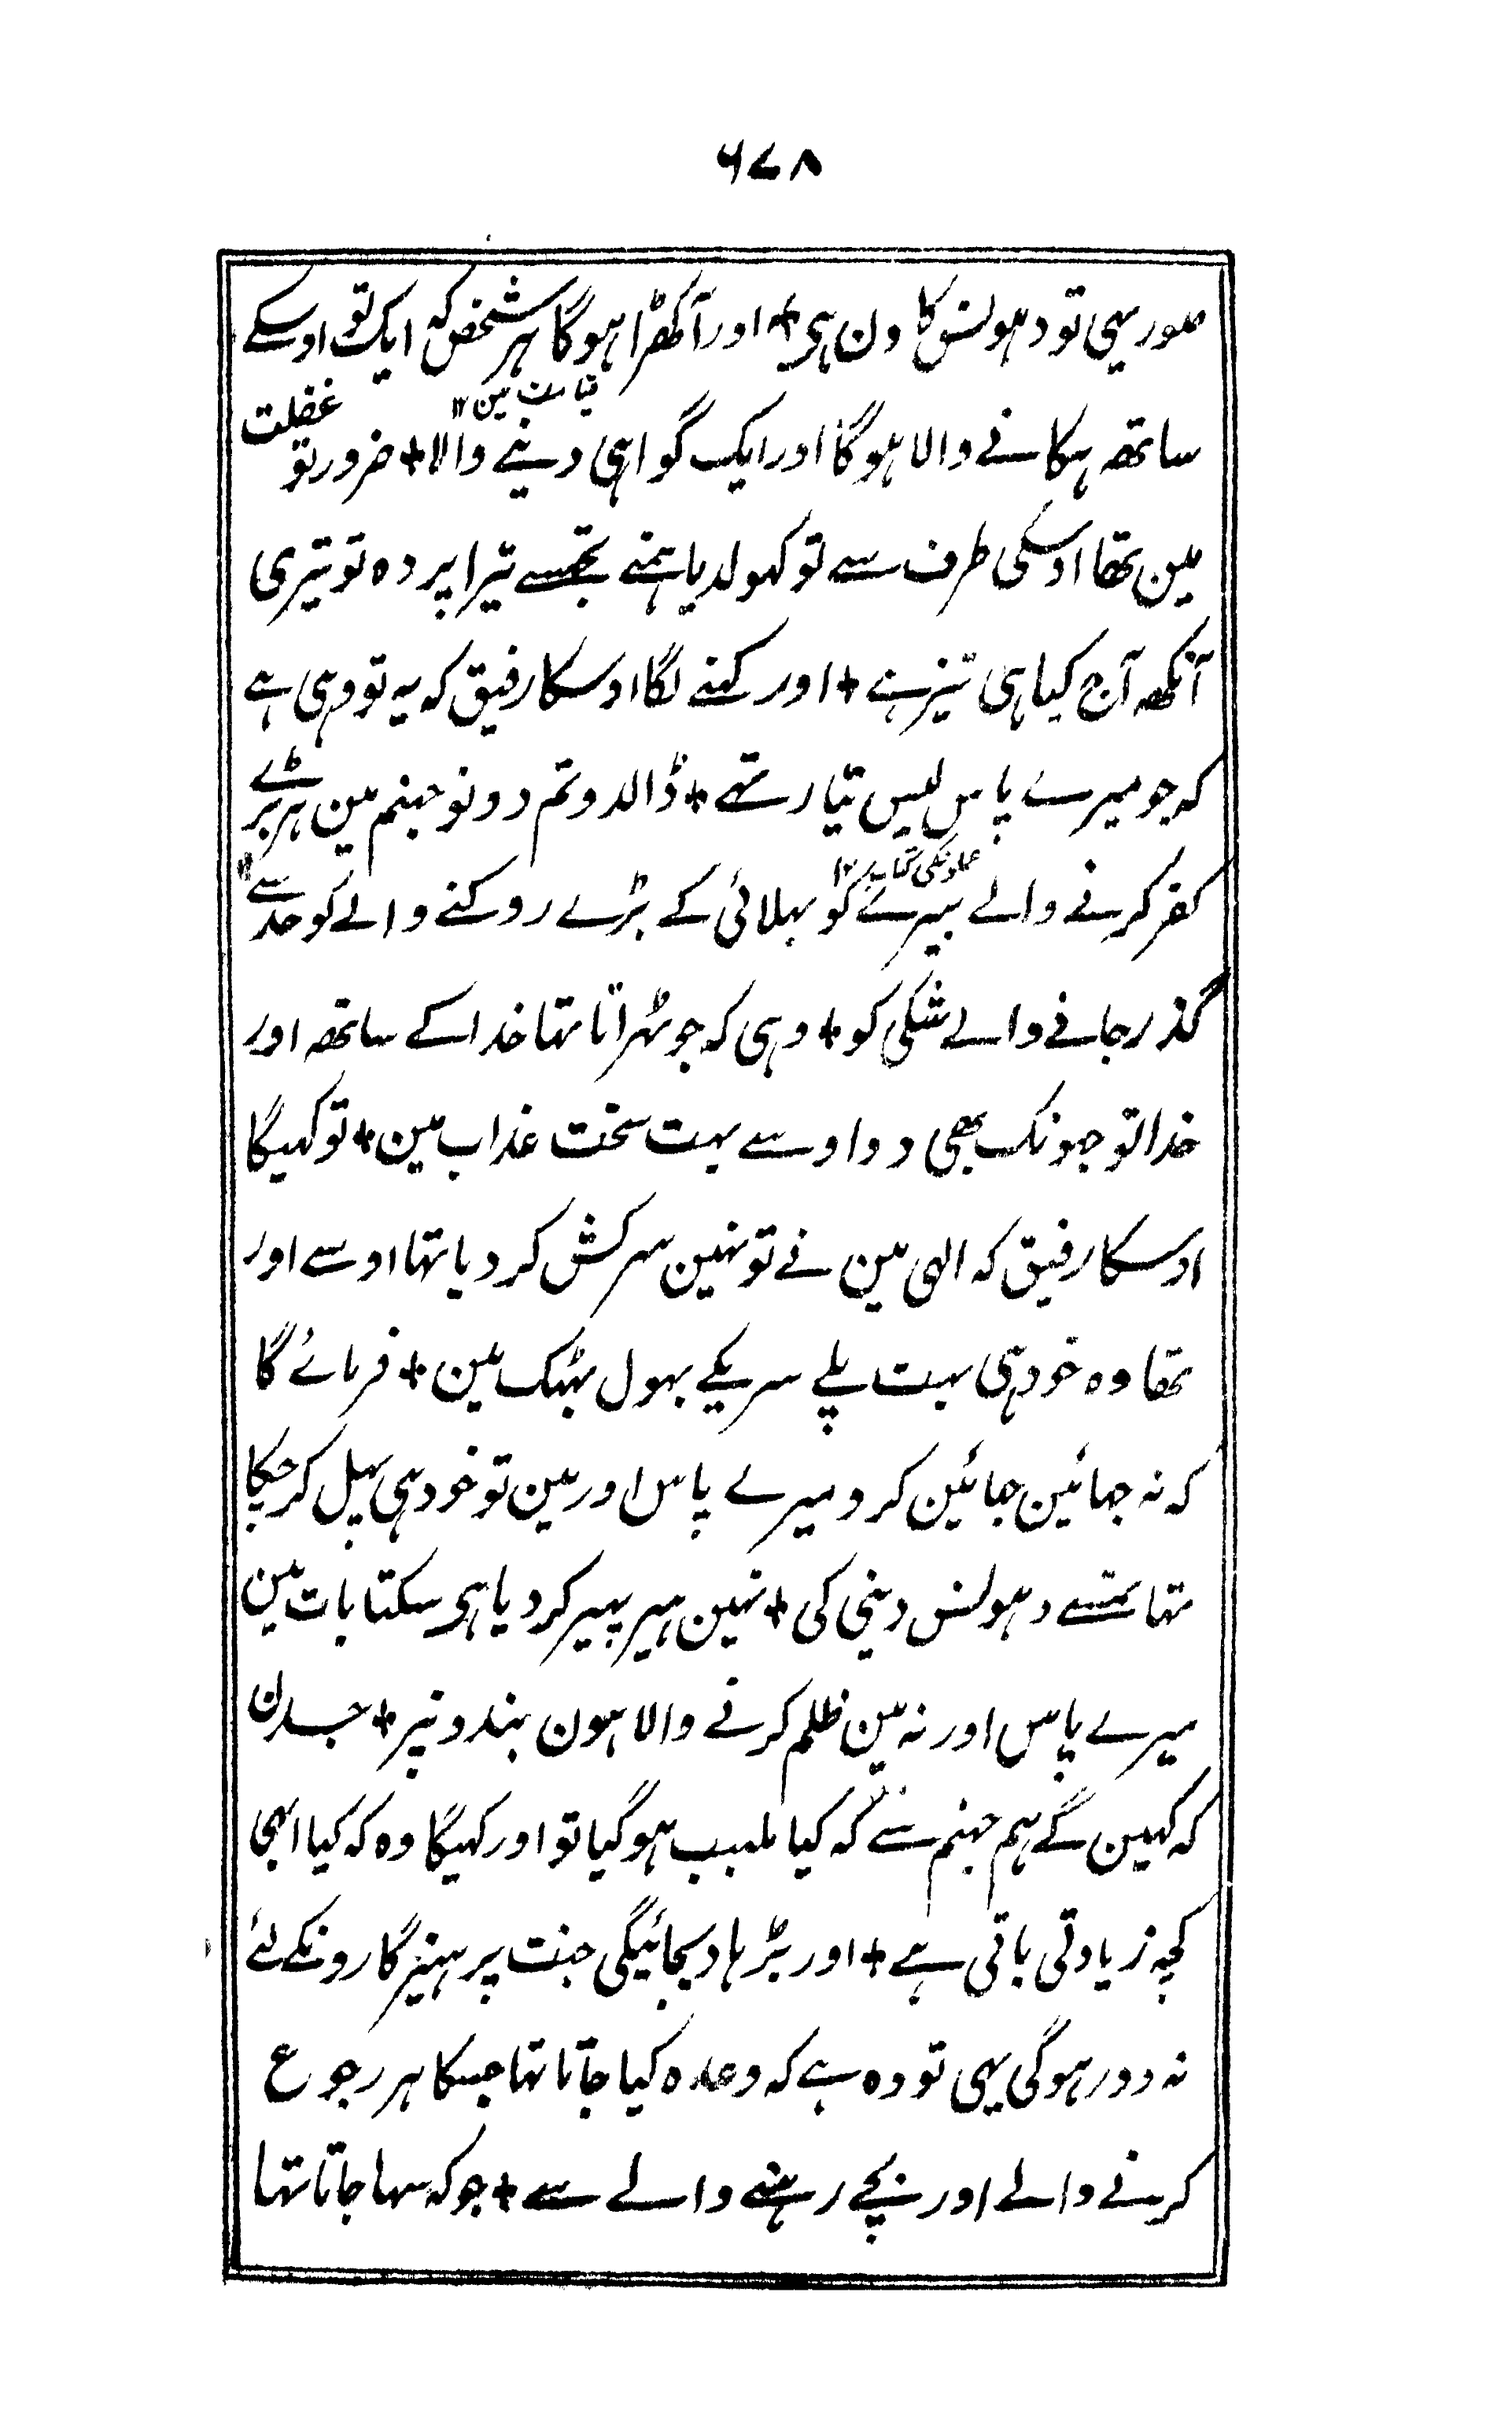 ۶۷۸
صور یہی تو دہونس کا دن ہی + اور آ کھڑا ہوگا ہر شخص کہ ایک تو اوسکے
ساتھ ہکانے والا ہوگا اور ایک گواہی دینے والا + ضرور تو غفلت
قیامت مین ۱۲
مین تھا اوسکی طرف سے تو کہولدیا ہمنے تجھسے تیرا پردہ تو تیری
آنکھ آج کیا ہی تیز ہے + اور کہنے لگا اوسکا رفیق کہ یہ تو وہی ہے
کہ جو میرے پاس لیس تیار تہے + ڈالدو تم دونو جہنم مین ہر بڑے
کفر کرنے والے بیرے کو بہلائی کے بڑے روکنے والے کو حد سے
گذر جانے والے شکی کو + وہی کہ جو ٹہراتا تہا خدا کے ساتھ اور
خدا تو جہونک بھی دو اوسے بہت سخت عذاب مین + تو کہیگا
اوسکا رفیق کہ الہی مین نے تو نہین سرکش کر دیا تہا اوسے اور
تھا وہ خود ہی بہت پلے سریکے بہول بہٹک مین + فرمائے گا
کہ نہ جہائین جائین کرو میرے پاس اور مین تو خود ہی پہل کر چکا
تہا تمسے دہونس دینی کی + نہین ہیر پہیر کر دیا ہی سکتا بات مین
میرے پاس اور نہ مین ظلم کرنے والا ہون بندونپر + جسدن
کہ کہین گے ہم جہنم سے کہ کیا ملبب ہو گیا تو اور کہیگا وہ کہ کیا ابھی
کچہ زیادتی باقی ہے + اور بڑہا دیجائیگی جنت پرہیزگارونکے لئے
نہ دور ہوگی یہی تو وہ ہے کہ وعدہ کیا جاتا تہا جسکا ہر رجوع
کرنے والے اور بچے رہنے والے سے + جو کہ سہا جاتا تہا